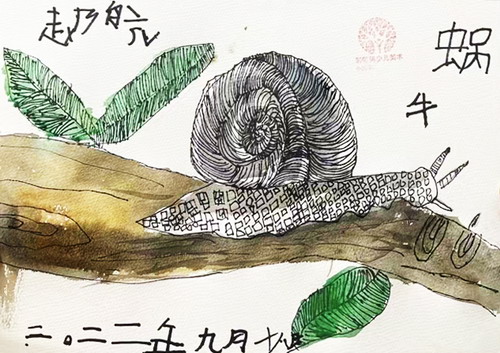 赵乃航
蜗
牛
二〇二二年九月十八日